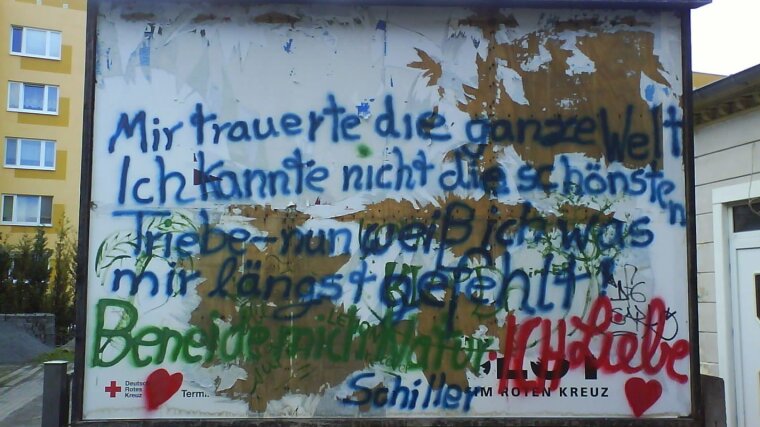 Mir trauerte die ganze Welt
Ich kannte nicht die schönsten
Triebe – nun weiß ich was
mir längst gefehlt!
Beneide mich Natur ICH Liebe
Schiller
Deutsches
Rotes
Kreuz
Termi
IM ROTEN KREUZ